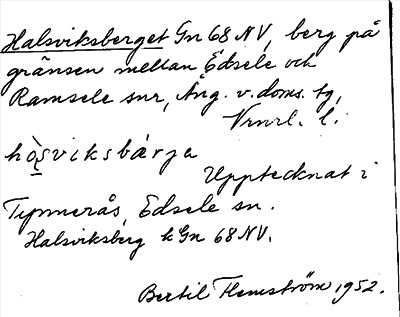 Halsviksberget Gn 68 NV, berg på
gränsen mellan Edsele och
Ramsele snr, Ång. v. doms. tg,
Vrnrl. l.
hòs̱viksbárja
Upptecknat i
Typmerås, Edsele sn.
Halsviksberg k Gn 68 NV.
Bertil Flemström 1952.